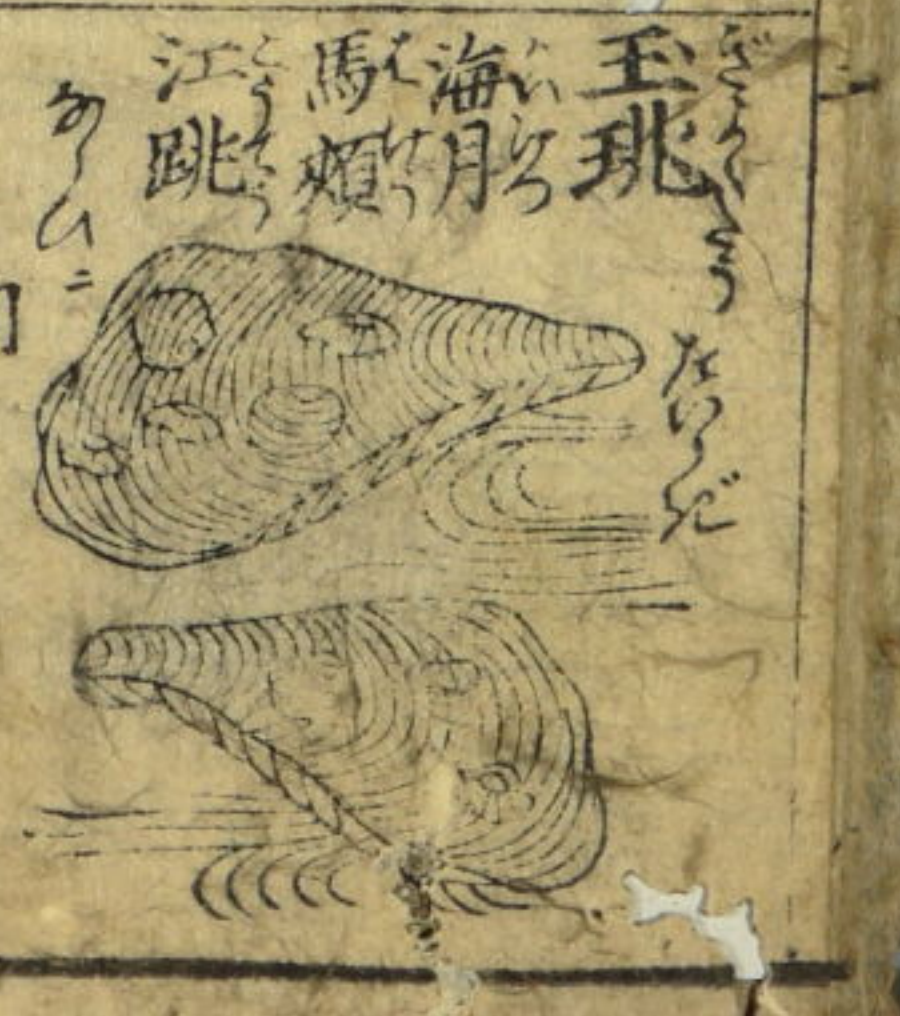 玉珧
ぎよくたう
たいらぎ
海月
かいげつ
馬頰
ばけう
江跳
こうてう